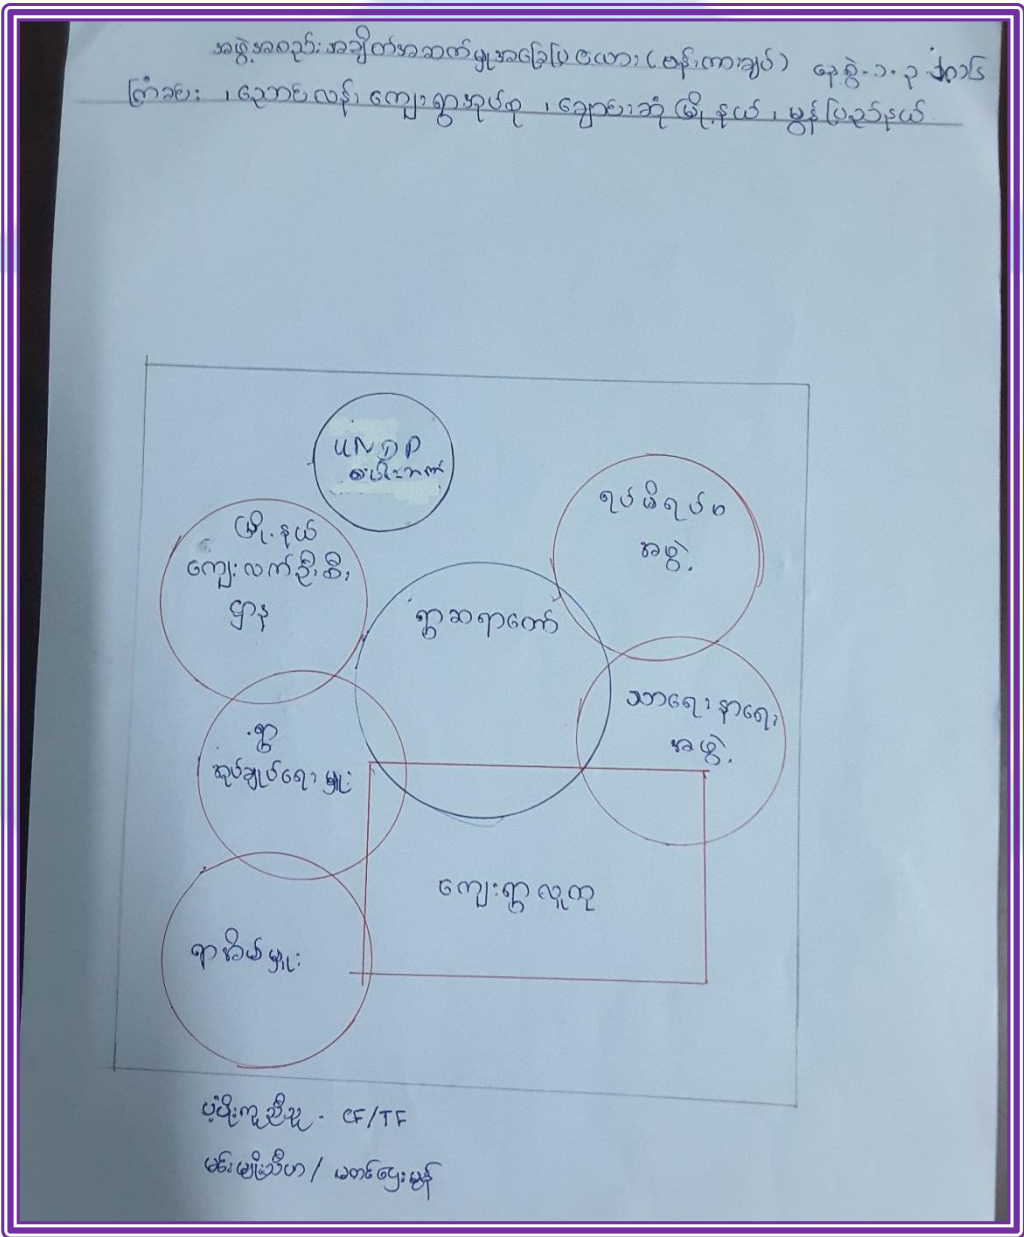 အဖွဲ့အစည်းအချိတ်အဆက်မှုအခြေပြဇယား (ဗန်းကားချပ်) နေ့စွဲ-၁.၃.၂၀၁၆
ကြံခင်း ၊ ညောင်လန်း ကျေးရွာအုပ်စု ၊ ချောင်းဆုံမြို့နယ် ၊ မွန်ပြည်နယ်
UNDP
မြို့နယ်
ကျေးလက်ဦးစီး
ဌာန
ရပ်မိရပ်ဖ
အဖွဲ့
ရွာဆရာတော်
သာရေးနာရေး
အဖွဲ့
ရွာ
အုပ်ချုပ်ရေးမှူး
ကျေးရွာလူထု
ရာအိမ်မှူး
ပံ့ပိုးကူညီသူ - CF/TF
မင်းမျိုးသီဟ /